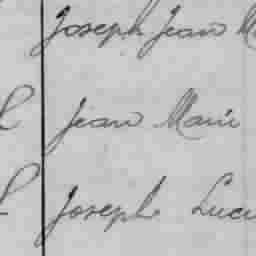 Joseph Jean
Jean Marie
Joseph